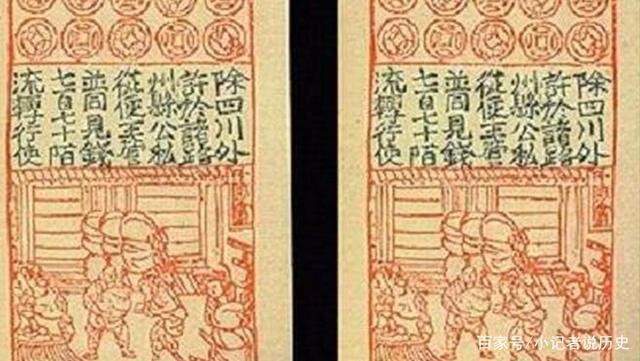 除四川外
許於諸路
州縣公私
從便主管
並同見錢
七百七十陌
流轉行使
除四川外
許於諸路
州縣公私
從便主管
並同見錢
七百七十陌
流轉行使
百家号/小记者说历史